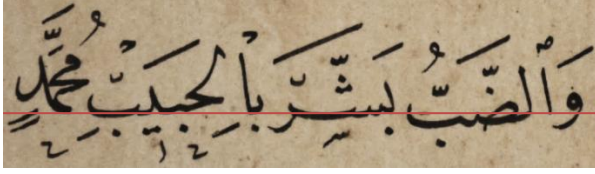 وَٱلضَّبُّ بَشَّرَ بِالحَبِيبِ مُحَمَّدٍ